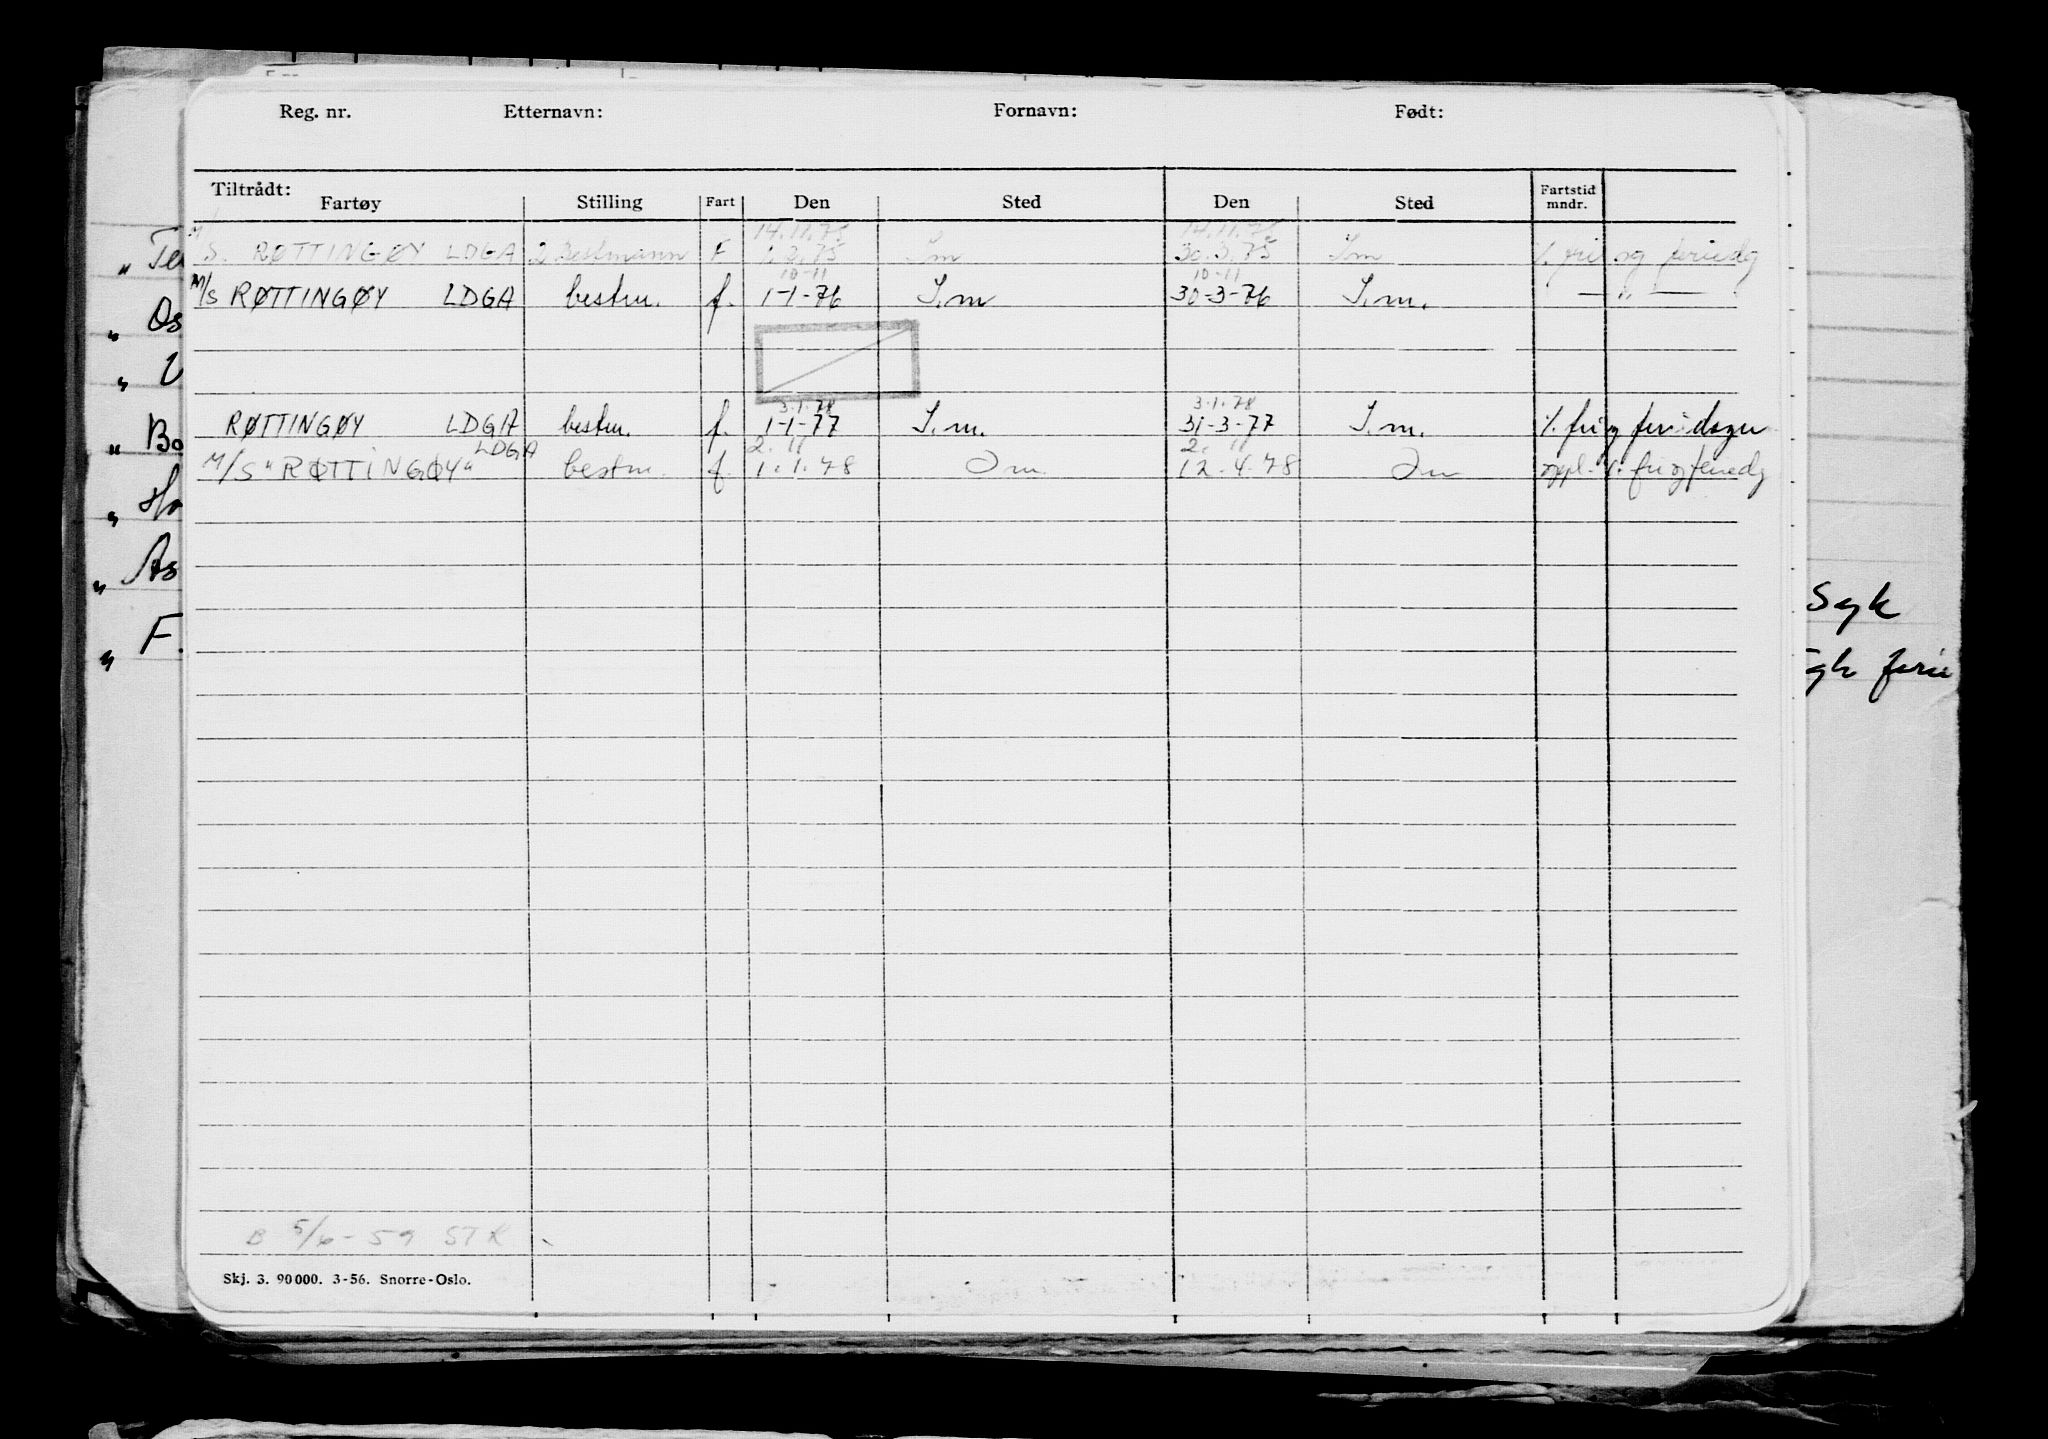 Reg. nr. Etternavn: Fornavn: Født:
Tiltrådt:
Fartøy Stilling Fart Den Sted Den Sted Fartstid mndr.
14.11.75 14.11.75
M/S. RØTTINGØY LDGA 2 Bestmann F 1.3.75 Sm 30.3.75 Sm /. fri og feriedg
10-11 10-11
M/S RØTTINGØY LDGA bestm. f. 1-1-76 S.m 30-3-76 S.m. — " —
3.1.78 3.1.78
RØTTINGØY LDGA bestm. f. 1-1-77 S.m. 31-3-77 S.m. /. fri og feriedager
LDGA 2. 11 2. 11
M/S "RØTTINGØY" bestm. f. 1.1.78 Sm 12.4.78 Sm /. fri og feriedg
B 5/6-59 STK
Skj. 3. 90 000. 3-56. Snorre-Oslo.
" Te
" Os
"
" Bo
" Ho
" As
" F.
Syk
ferie